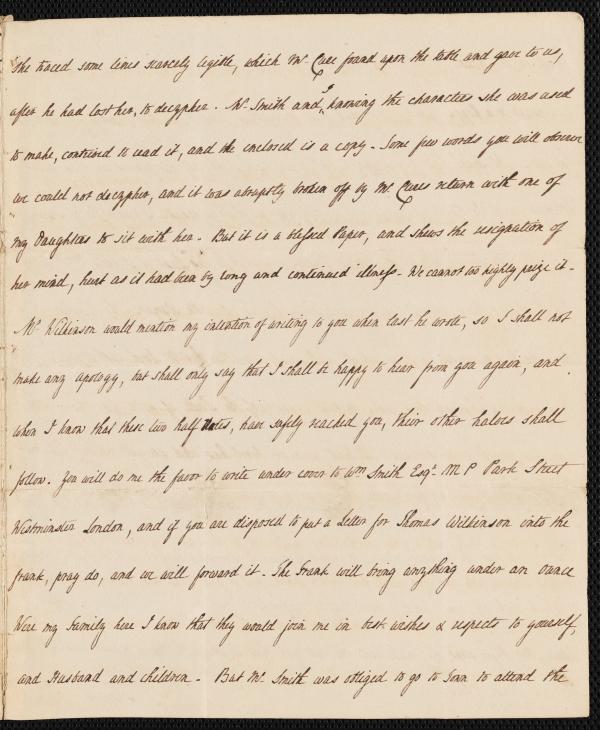 She traced some lines scarcely legible, which Mr. Cure found upon the table and gave to us,
after he had lost her, to decypher. Mr. Smith and I, knowing the characters she was used
to make, contrived to read it, and the enclosed is a copy - Some few words you will observe
we could not decypher, and it was abruptly broken off by Mr. Cures return with one of
my Daughters to sit with her - But it is a blessed Paper, and shews the resignation of
her mind, hurt as it had been by long and continued illness - We cannot too highly prize it -
Mr. Wilkinson would mention my intention of writing to you when last he wrote, so I shall not
make any apology, but shall only say that I shall be happy to hear from you again, and
when I know that these two half Notes, have safely reached you, their other halves shall
follow. You will do me the favor to write under cover to Wm Smith Esqr. M P Park Street
Westminster London, and if you are disposed to put a Letter for Thomas Wilkinson into the
frank, pray do, and we will forward it - The Frank will bring anything under an ounce
Were my Family here I know that they would join me in best wishes & respects to yourself,
and Husband and children - But Mr. Smith was obliged to go to Town to attend the